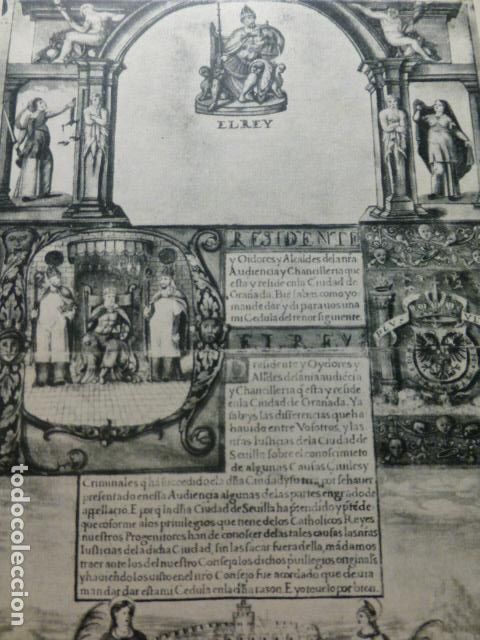 EL REY
RESIDENTE
y Oidores y Alcaldes de la nrã
Audiencia y Chancilleria que
esta y reside en la Ciudad de
Granada. Bie sabeis como yo
mande dar y di para vos una
mi Cedula del tenor siguiente.
EL REY
Presidente y Oydores y
Alcldes de la nra audiẽcia
y Chancilleria q̃ esta y reside
en la Ciudad de Granada. Ya
sabeys las differencias que ha
hauido entre Vosotros, y las
nr̃as Iusticias de la Ciudad de
Sevilla sobre el conoscimiẽto
de algunas Causas Ciuiles y
Criminales q̃ hã succedido ẽ la dh̃a Ciudad y su por se hauer
presentado en essa Audiencia algunas de las partes en grado de
appellaciõ. E porq̃ la dh̃a Ciudad de Sevilla ha prendido y
que coforme a los priuilegios que tiene de los Catholicos Reyes
nuestros Progenitores han de conoscer de las tales causas las nrãs
Iusticias de la dicha Ciudad, sin las sacar fuera della, mãdamos
traer ante los del nuestro Consejo los dichos puilegios originals
y hauiendo los visto en el nr̃o Consejo fue acordado que deuia
mandar dar esta mi Cedula en la dh̃a razon. E yo tuue lo por bien.
todocoleccion